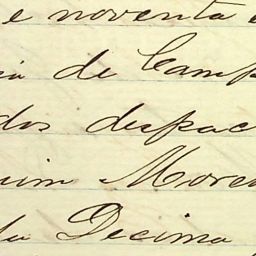 e noventa e
ia de Camp
dos despac
uim More
da Decima